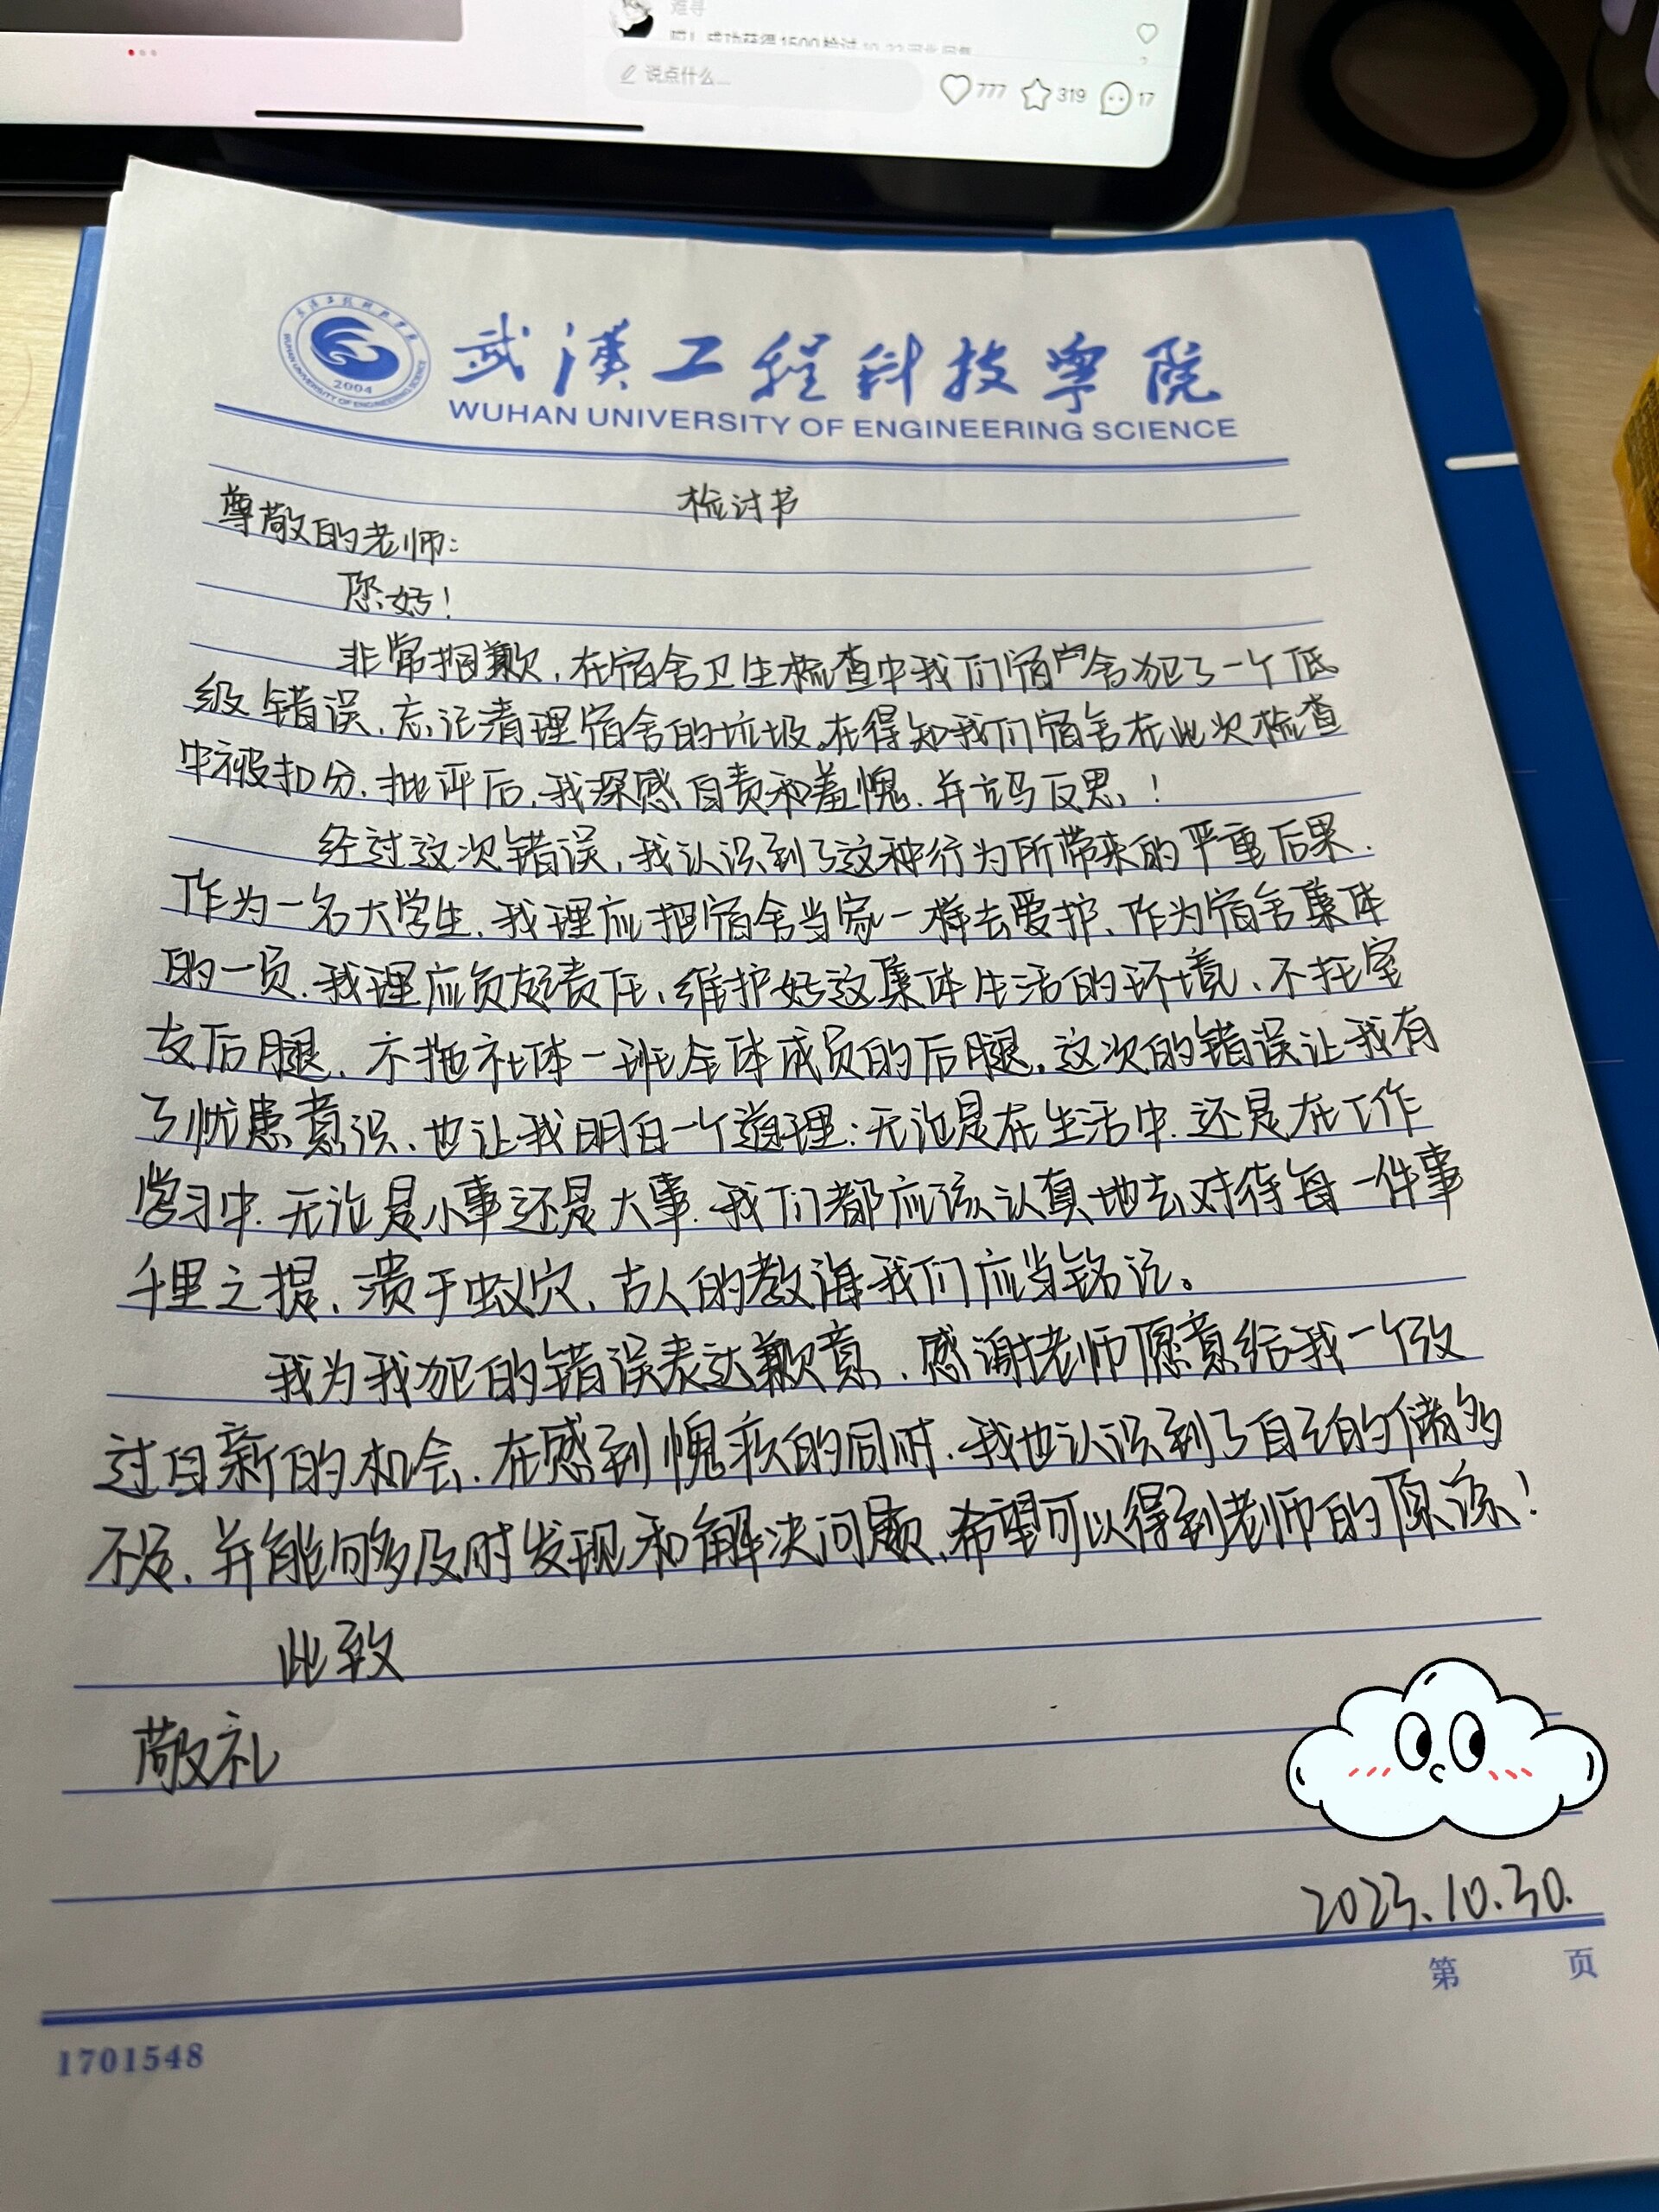 说点什么...
777
319
17
武汉工程科技学院
WUHAN UNIVERSITY OF ENGINEERING SCIENCE
2004
检讨书
尊敬的老师:
您好!
非常抱歉,在宿舍卫生检查中我们宿舍犯了一个低
级错误,忘记清理宿舍的垃圾。在得知我们宿舍在此次检查
中被扣分、批评后,我深感自责和羞愧,并立马反思!
经过这次错误,我认识到了这种行为所带来的严重后果.
作为一名大学生,我理应把宿舍当家一样去爱护、作为宿舍集体
的一员,我理应负起责任、维护好这集体生活的环境、不拖室
友后腿,不拖社体一班全体成员的后腿,这次的错误让我有
了忧患意识、也让我明白一个道理:无论是在生活中,还是在工作
学习中,无论是小事还是大事,我们都应该认真地去对待每一件事
千里之提、溃于蚁穴、古人的教诲我们应当铭记。
我为我犯的错误表达歉意,感谢老师愿意给我一个改
过自新的机会,在感到愧疚的同时,我也认识到了自己的诸多
不足,并能够及时发现和解决问题,希望可以得到老师的原谅!
此致
敬礼
2023.10.30.
第 页
1701548